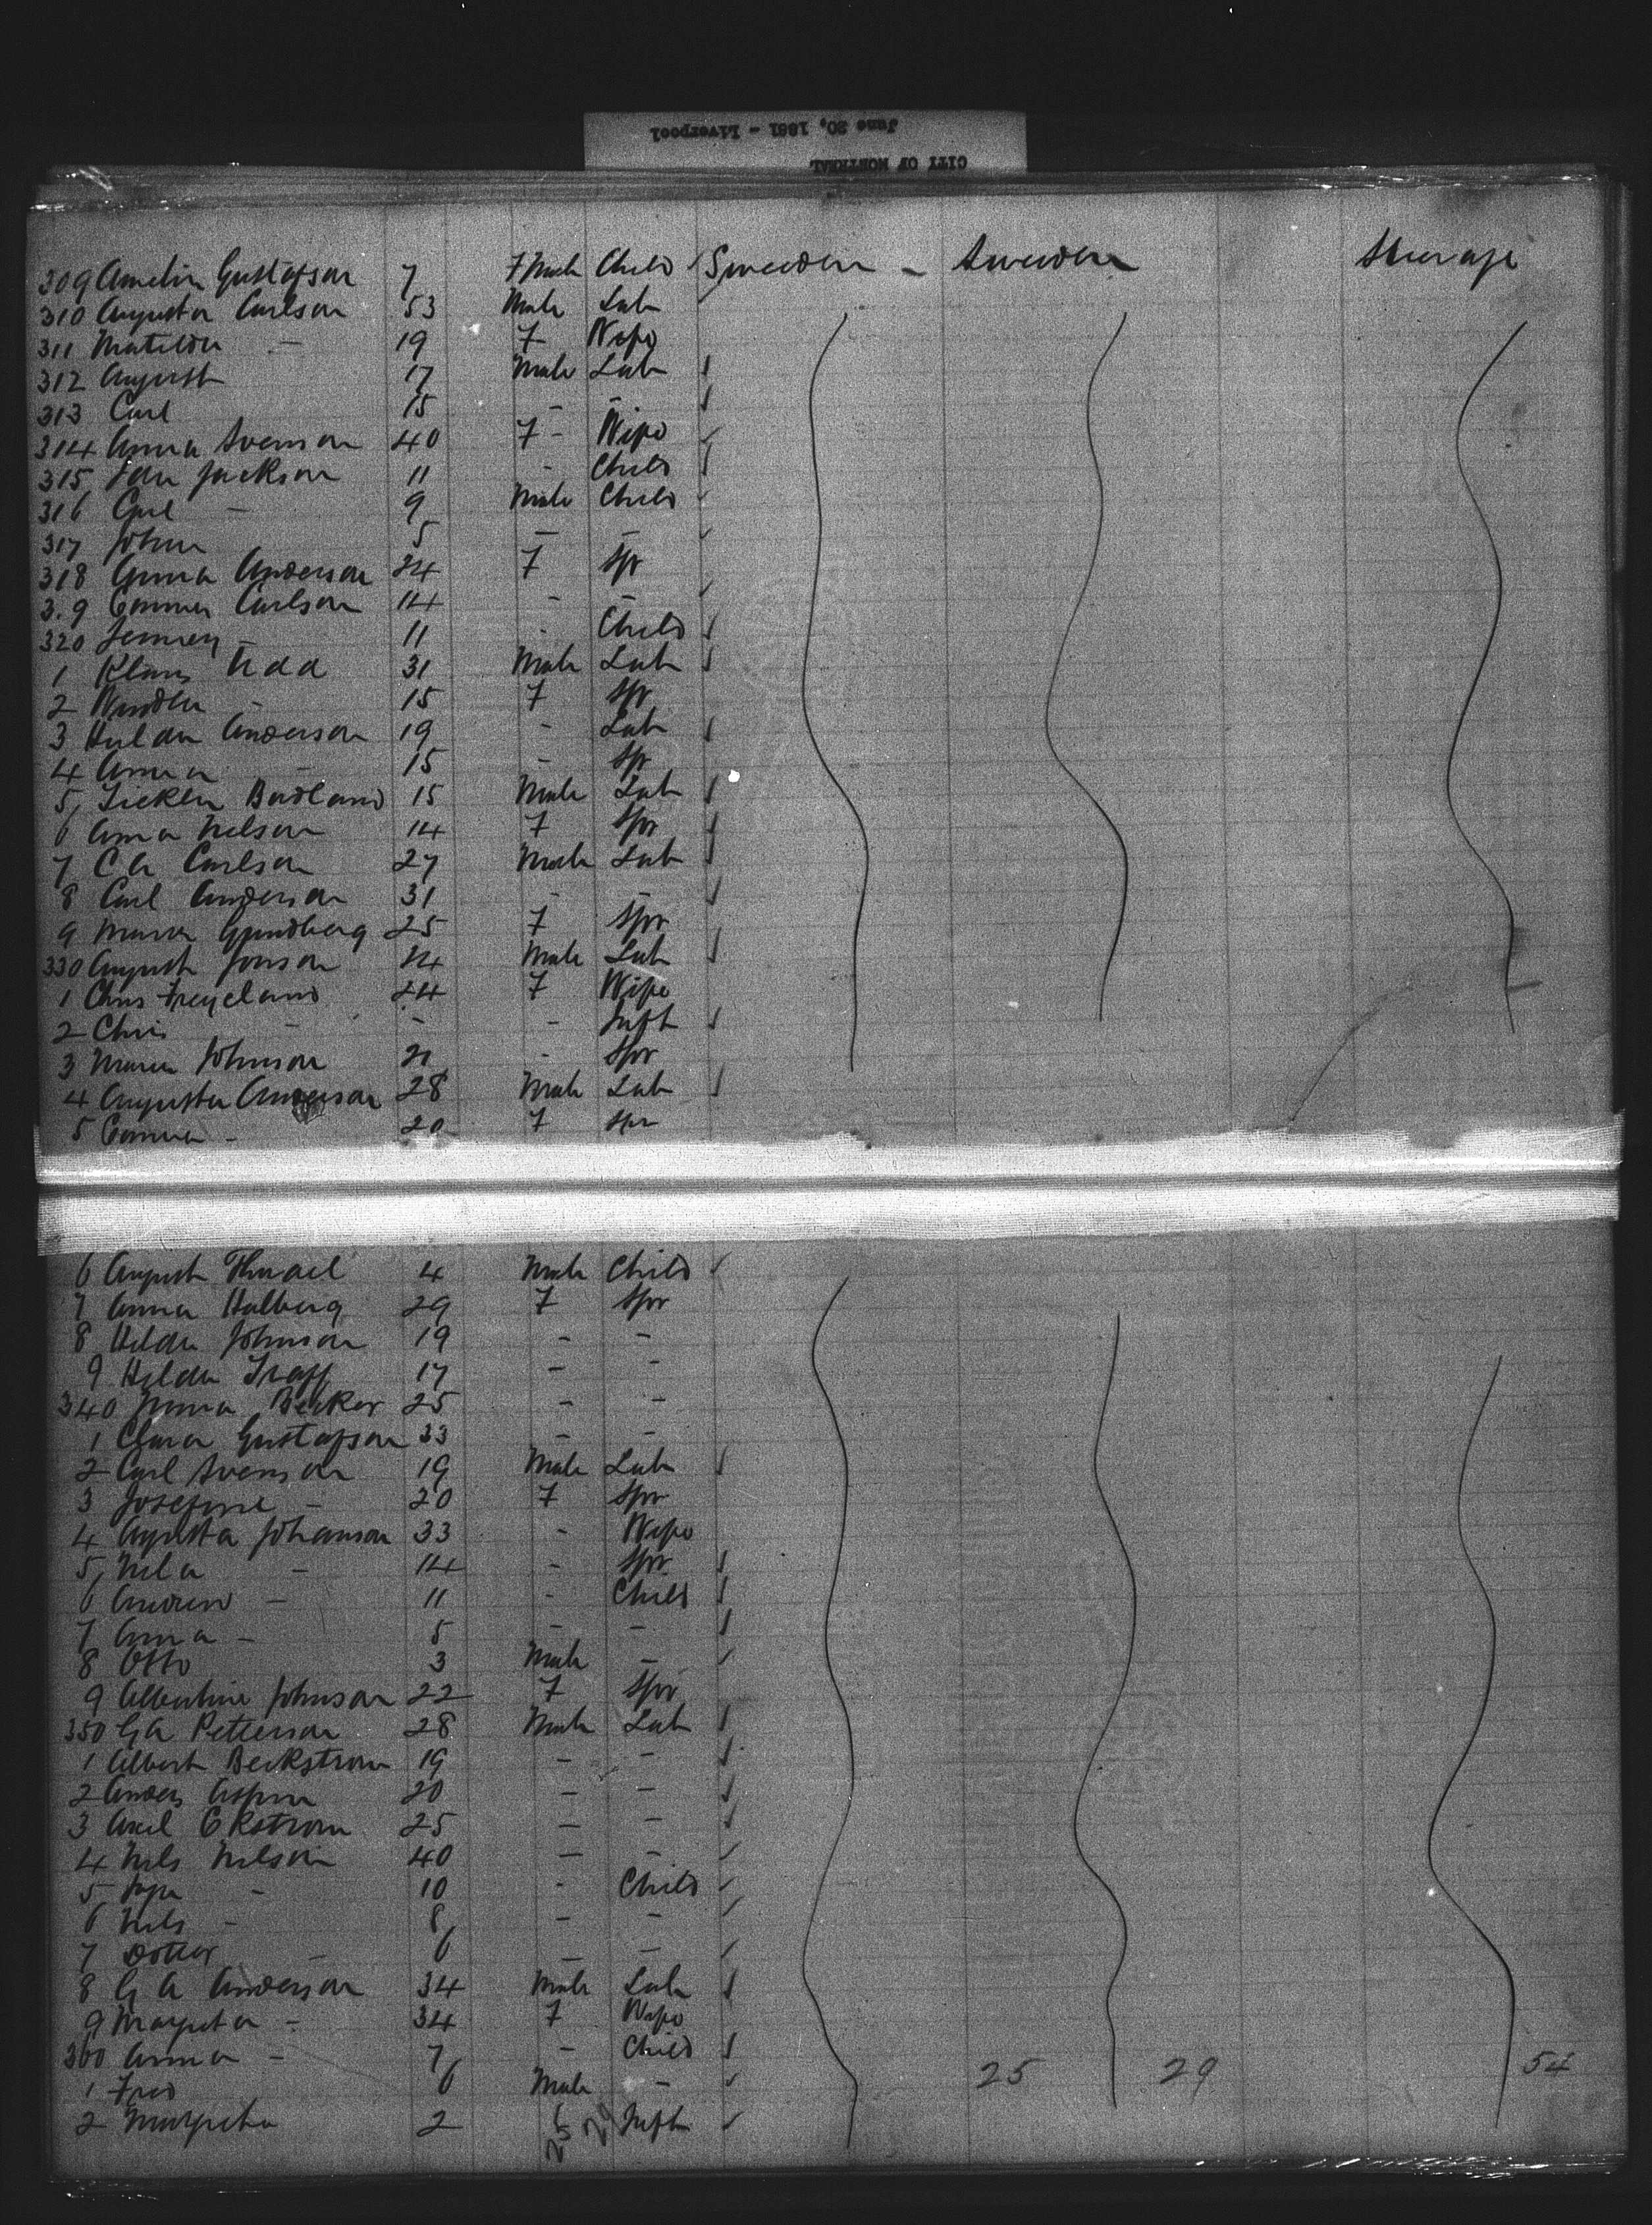 June 20, 1881 - Liverpool
CITY OF MONTREAL
309 Amelia Gustafson 7 F Male Child Sweden - Sweden Steerage
310 Augusta Carlson 53 Male Lab
311 Matilda - 19 F Wife
312 August 17 Male Lab
313 Carl 15 - -
314 Anna Svenson 40 F - Wife
315 Ida Jackson 11 - Child
316 Carl - 9 Male Child
317 John 5 - -
318 Anna Anderson 24 F Spr
3.9 Emma Carlson 14 - -
320 Jenney - 11 - Child
1 Klaus 31 Male Lab
2 - 15 F Spr
3 Hulda Anderson 19 - Lab
4 Anna - 15 - Spr
5 Badland 15 Male Lab
6 Anna Nelson 14 F Spr
7 C A Carlson 27 Male Lab
8 Carl Anderson 31 - -
9 Maria 25 F Spr
330 August Jonson 24 Male Lab
1 Chris 24 F Wife
2 Chris - - - Inft
3 Maria Johnson 21 - Spr
4 Augusta Anderson 28 Male Lab
5 Emma - 20 F Spr
6 August 4 Male Child
7 Anna Halberg 29 F Spr
8 Hilda Johnson 19 - -
9 Hilda 17 - -
340 Becker 25 - -
1 Clara Gustafson 33 - -
2 Carl Svenson 19 Male Lab
3 Josefine - 20 F Spr
4 Agusta Johanson 33 - Wife
5 - 14 - Spr
6 Andrew - 11 - Child
7 Anna - 5 - -
8 Otto 3 Male -
9 Albertine Johnson 22 F Spr
350 G A Petterson 28 Male Lab
1 Albert Beckstrom 19 - -
2 Anders 20 - -
3 Axel Ekstrom 25 - -
4 Nils Nilson 40 - -
5 - 10 - Child
6 Nils - 8 - -
7 - 6 - -
8 G A Anderson 34 Male Lab
9 Margreta - 34 F Wife
360 Anna - 7 - Child
1 Fred 6 Male - 25 29 54
2 Margreta 2 F Inft
25 29